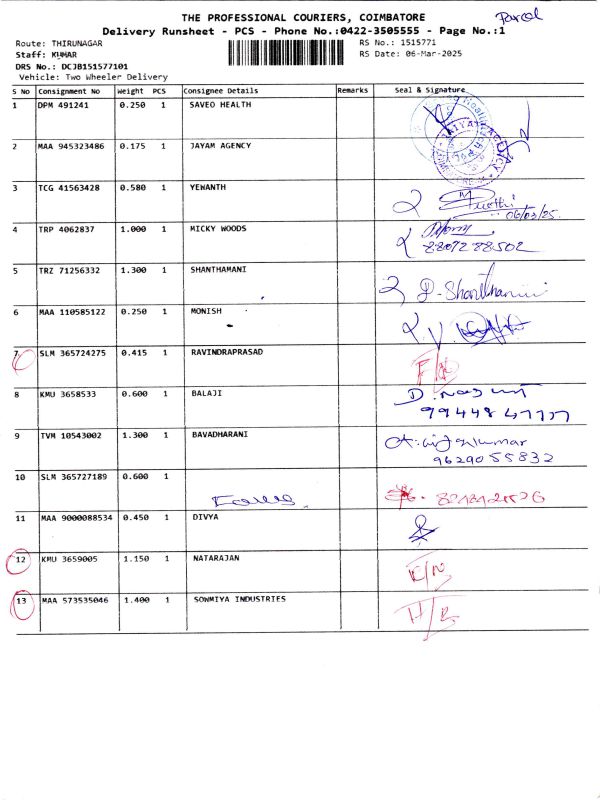 THE PROFESSIONAL COURIERS, COIMBATORE
Parcel
Delivery Runsheet - PCS - Phone No.:0422-3505555 - Page No.:1
Route: THIRUNAGAR
RS No.: 1515771
Staff: KUMAR
RS Date: 06-Mar-2025
DRS No.: DCJB151577101
Vehicle: Two Wheeler Delivery
S No Consignment No Weight PCS Consignee Details Remarks Seal & Signature
1 DPM 491241 0.250 1 SAVEO HEALTH
2 MAA 945323486 0.175 1 JAYAM AGENCY
3 TCG 41563428 0.580 1 YEWANTH
06/03/25.
4 TRP 4062837 1.000 1 MICKY WOODS
8807288502
5 TRZ 71256332 1.300 1 SHANTHAMANI
6 MAA 110585122 0.250 1 MONISH
7 SLM 365724275 0.415 1 RAVINDRAPRASAD
8 KMU 3658533 0.600 1 BALAJI
9 TVM 10543002 1.300 1 BAVADHARANI
9629055832
10 SLM 365727189 0.600 1
11 MAA 9000088534 0.450 1 DIVYA
12 KMU 3659005 1.150 1 NATARAJAN
13 MAA 573535046 1.400 1 SOWMIYA INDUSTRIES